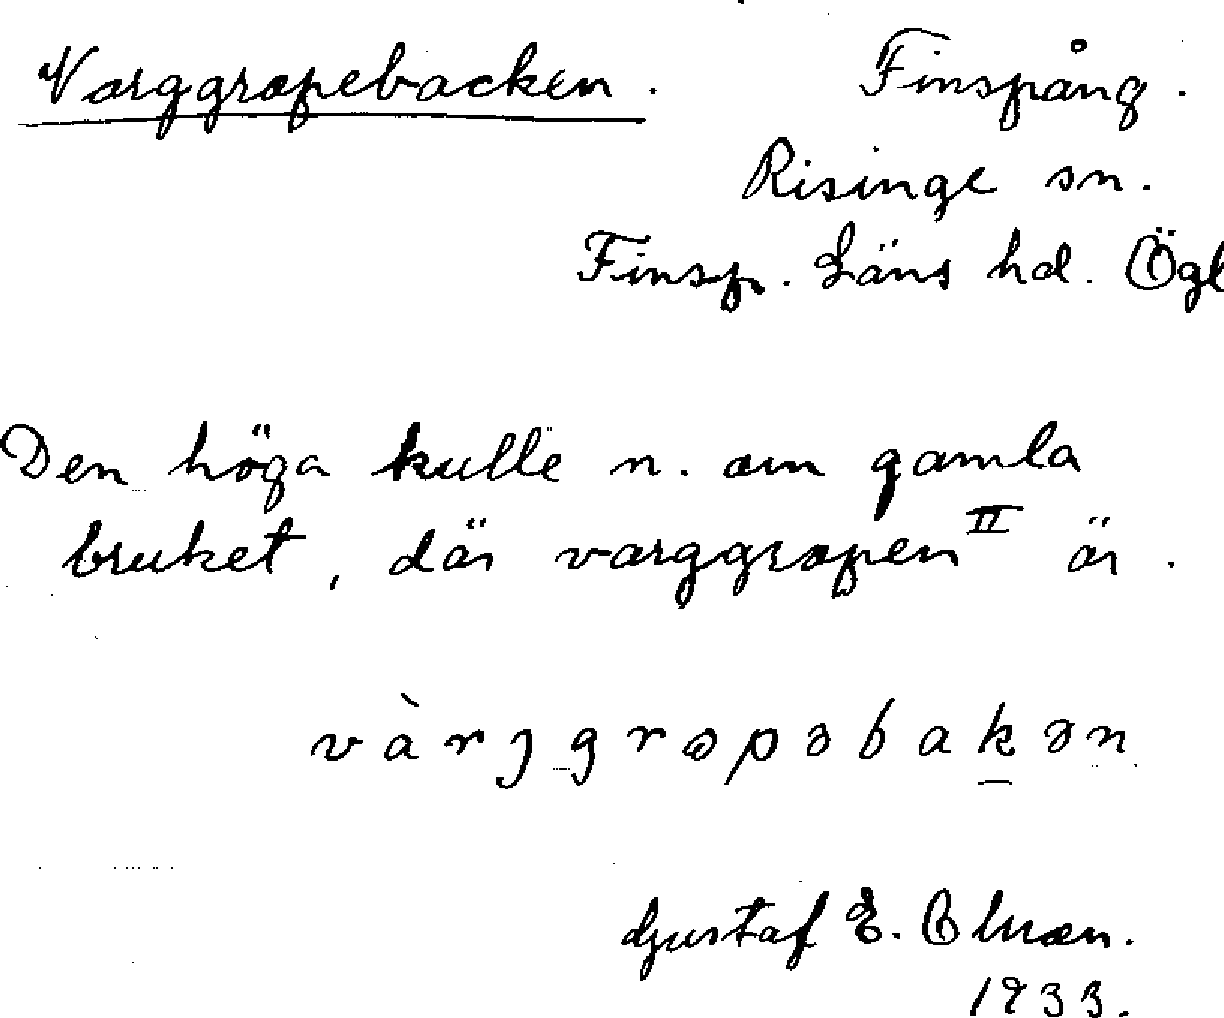 Varggropebacken. Finspång.
Risinge sn.
Finsp. Läns hd. Ögl
Den höga kulle n. om gamla
bruket, där varggropen II är.
vàrjgropəbakən
Gustaf E.
1933.